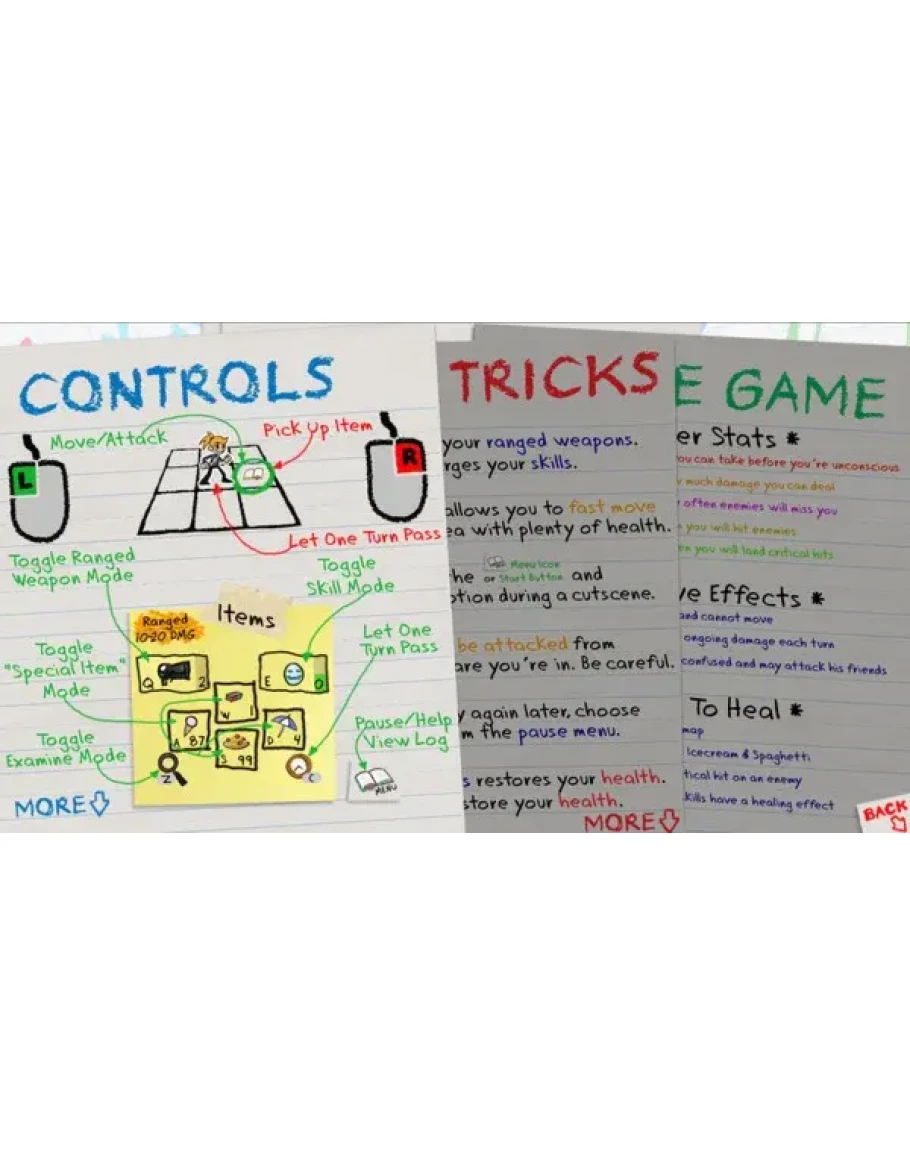 CONTROLS
Move/Attack
Pick Up Item
L
R
Let One Turn Pass
Toggle Ranged
Weapon Mode
Toggle
Skill Mode
Items
Ranged
10-20 DMG
Let One
Turn Pass
Toggle
"Special Item"
Mode
Q 2
E 0
W 1
A 87
S 99
D 4
Toggle
Examine Mode
Z
C
Pause/Help
View Log
MENU
MORE
TRICKS
your ranged weapons.
rges your skills.
allows you to fast move
ea with plenty of health.
he Menu Icon or Start Button and
ption during a cutscene.
be attacked from
are you're in. Be careful.
y again later, choose
m the pause menu.
s restores your health.
store your health.
MORE
E GAME
er Stats *
ou can take before you're unconscious
much damage you can deal
often enemies will miss you
you will hit enemies
en you will land critical hits
ve Effects *
and cannot move
ongoing damage each turn
confused and may attack his friends
To Heal *
map
Icecream & Spaghetti
tical hit on an enemy
kills have a healing effect
BACK